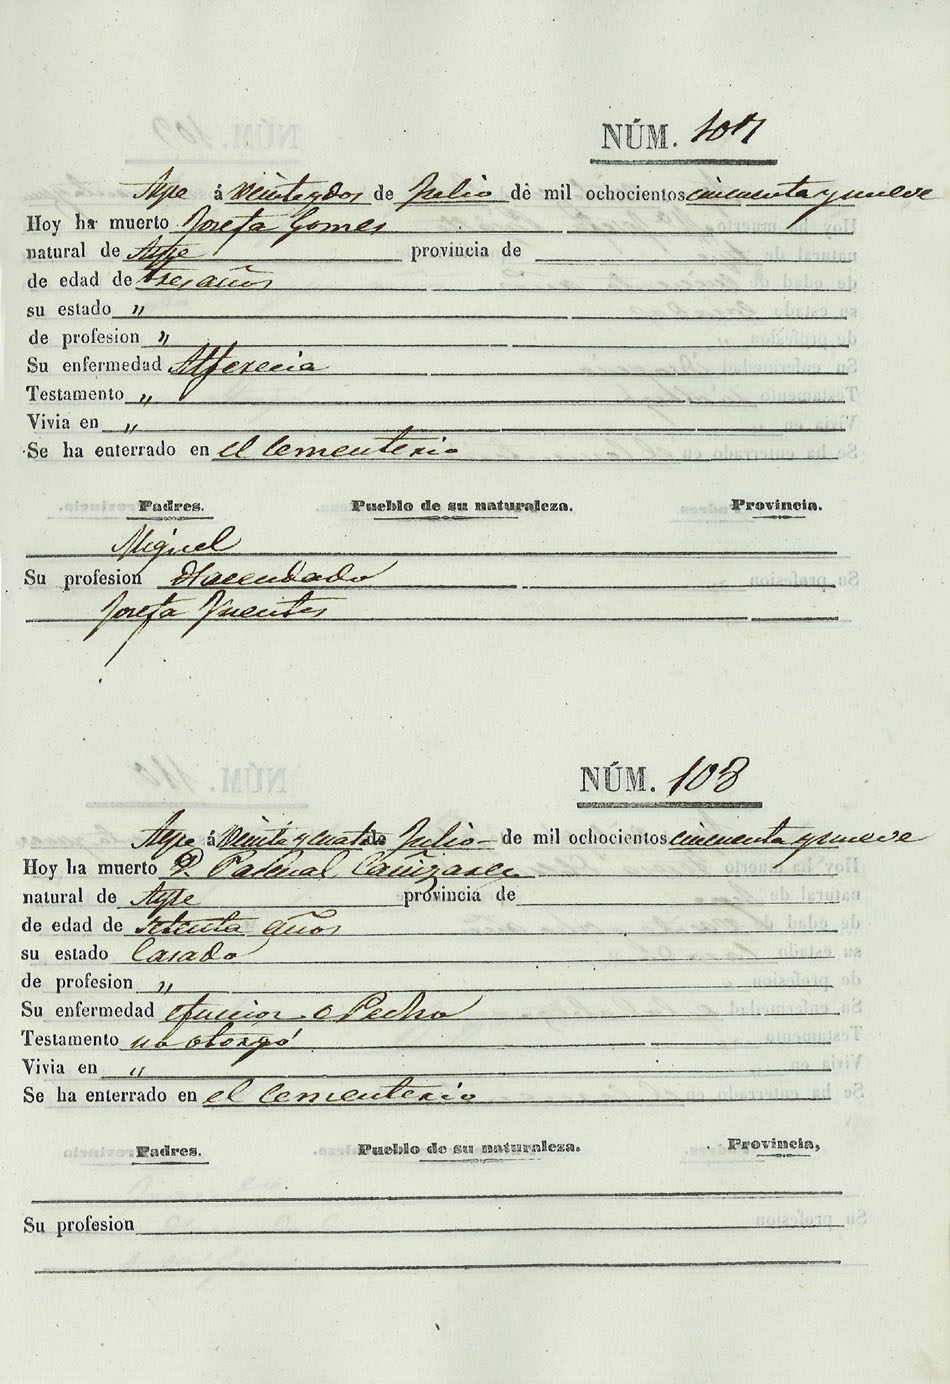 NÚM. 107
Aspe á veinte y dos de Julio de mil ochocientos cincuenta y nueve
Hoy ha muerto Josefa Gomes
natural de Aspe provincia de
de edad de tres años
su estado "
de profesion "
Su enfermedad Alferecia
Testamento "
Vivia en "
Se ha enterrado en el Cementerio
Padres. Pueblo de su naturaleza. Provincia.
Miguel
Su profesion Hacendado
Josefa Fuentes
NÚM. 108
Aspe á veinte y cuatro de Julio de mil ochocientos cincuenta y nueve
Hoy ha muerto D. Pascual Cañizares
natural de Aspe provincia de
de edad de setenta años
su estado Casado
de profesion "
Su enfermedad Pecho
Testamento no otorgó
Vivia en "
Se ha enterrado en el Cementerio
Padres. Pueblo de su naturaleza. Provincia,
Su profesion